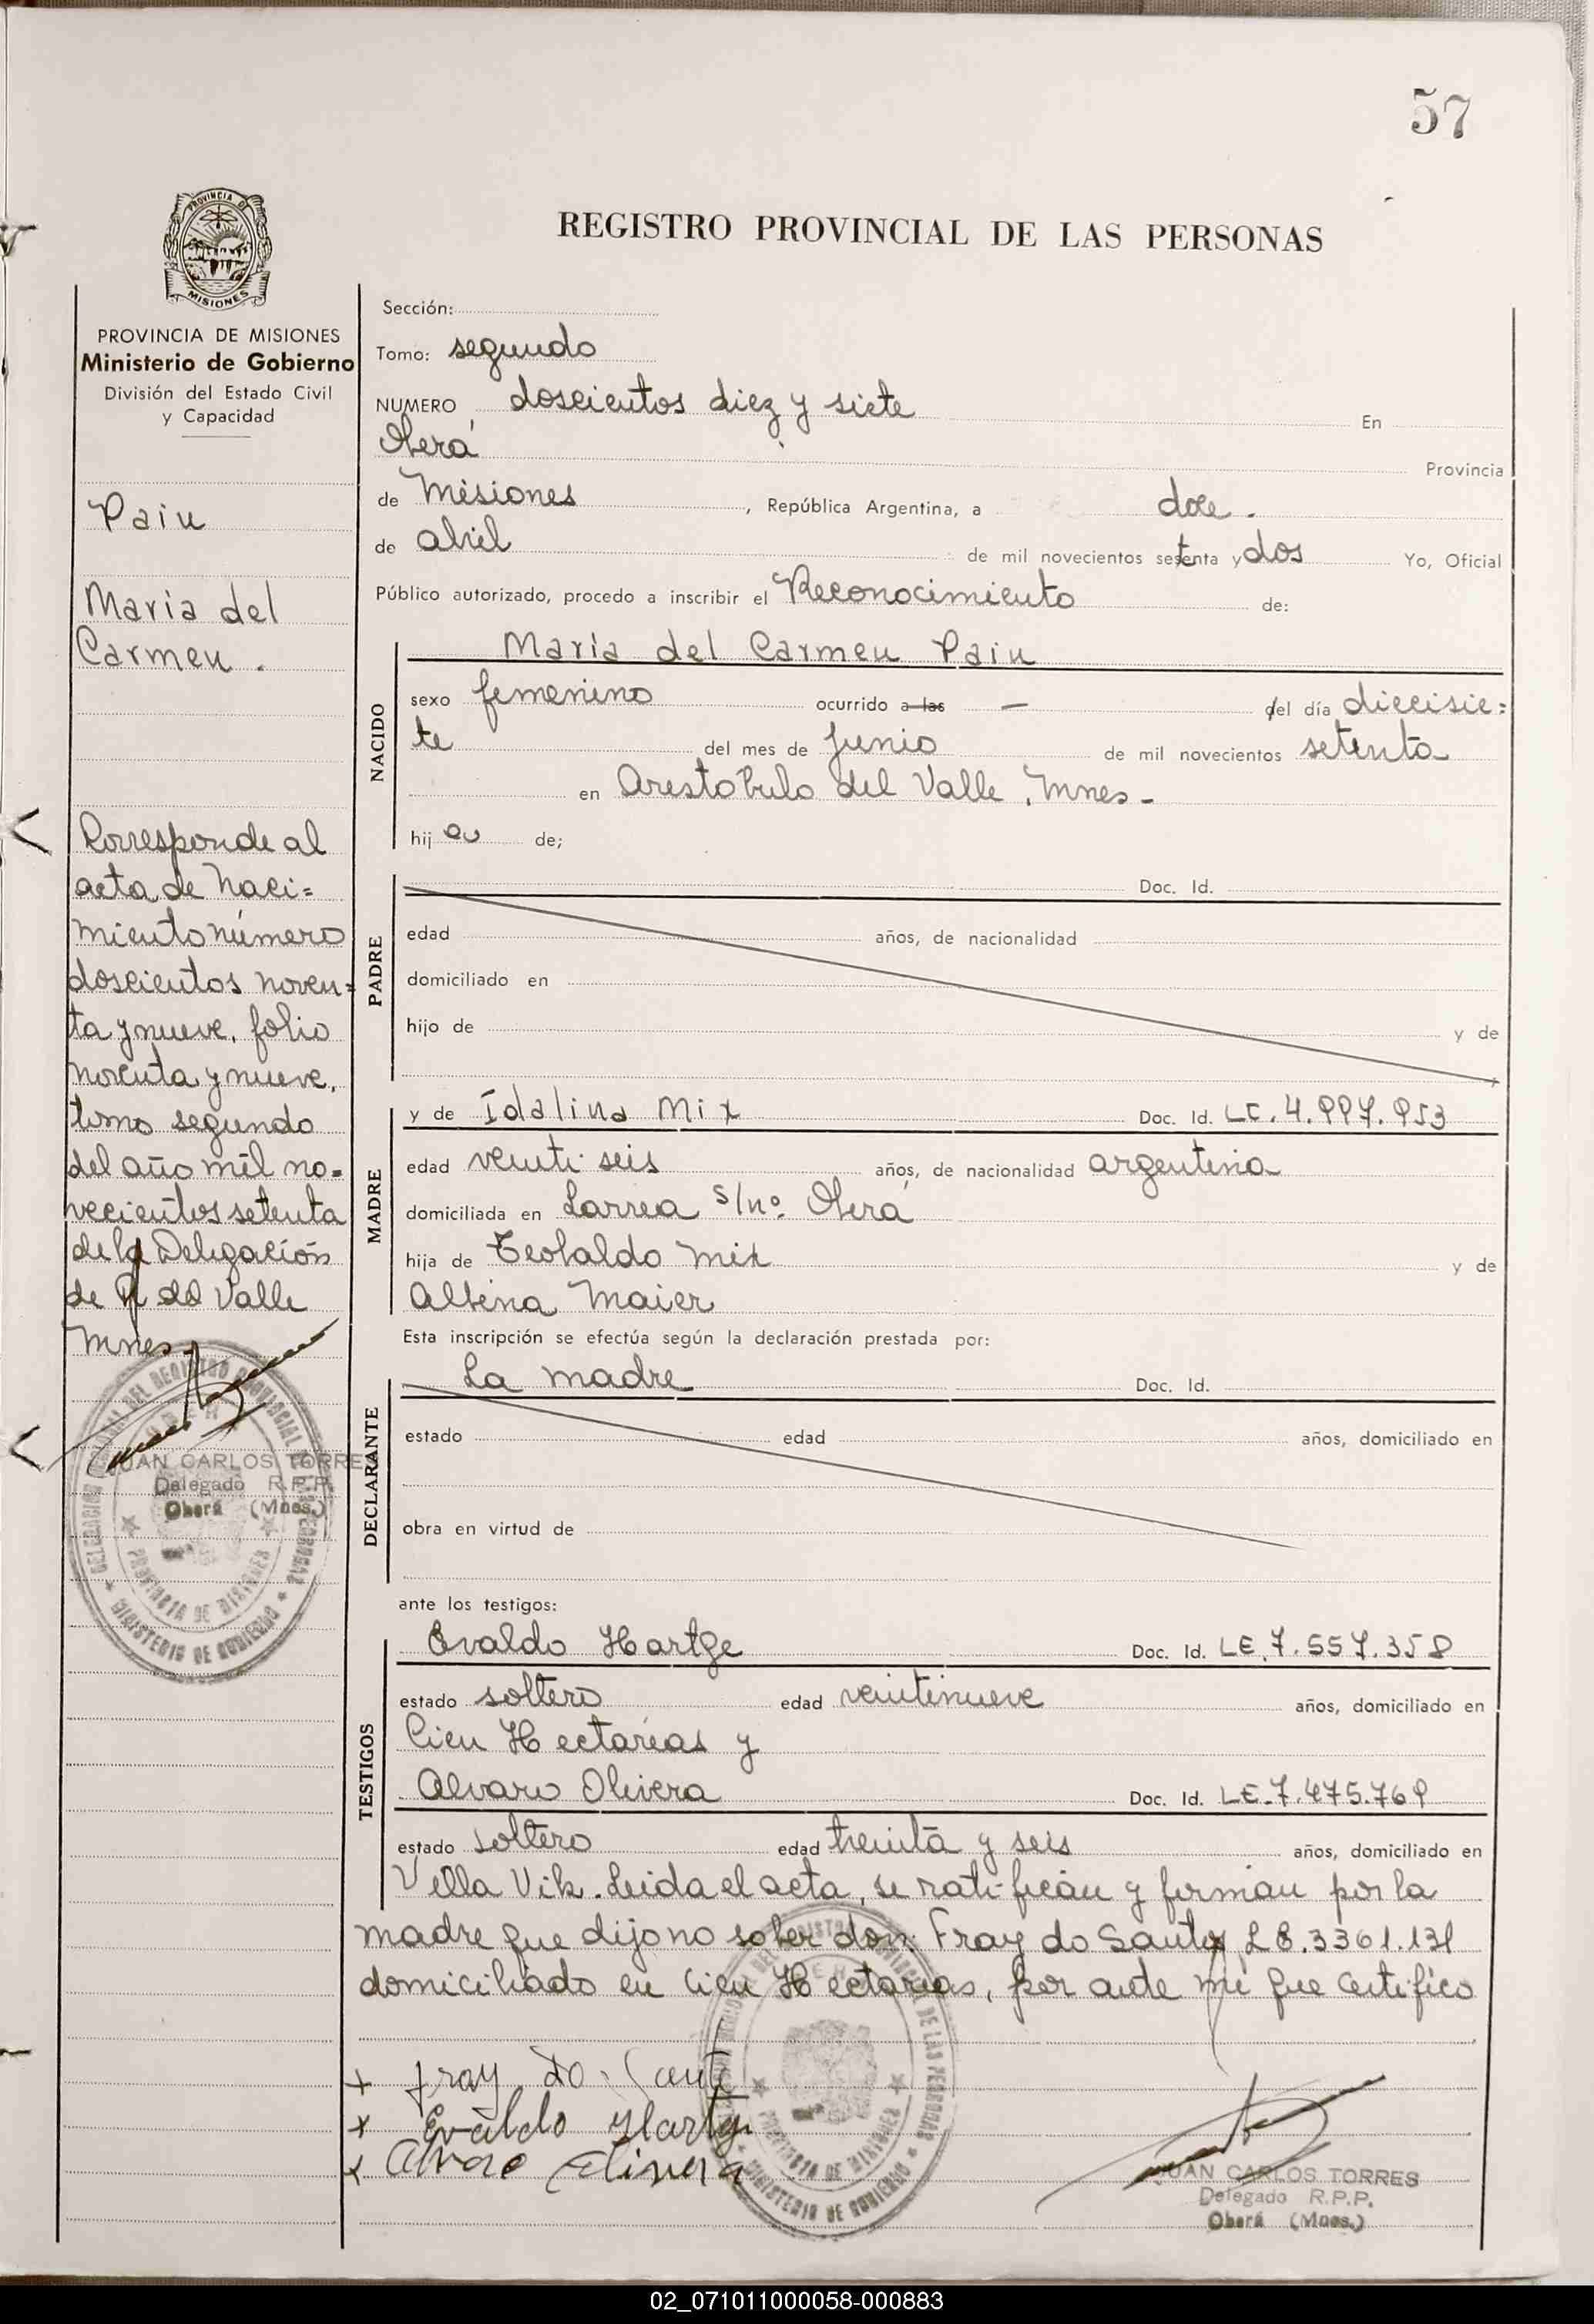 57
PROVINCIA DE
MISIONES
PROVINCIA DE MISIONES
Ministerio de Gobierno
División del Estado Civil
y Capacidad
Paiu
María del
Carmen.
Corresponde al
acta de Naci=
miento número
doscientos noven=
ta y nueve, folio
noventa y nueve,
tomo segundo
del año mil no=
vecientos setenta
de la Delegación
de A del Valle
Mnes.
JUAN CARLOS TORRES
Delegado R.P.P.
Oberá (Mnes.)
PROVINCIA DE MISIONES
MINISTERIO DE GOBIERNO
REGISTRO PROVINCIAL DE LAS PERSONAS
Sección:
Tomo: segundo
NUMERO doscientos diez y siete En
Oberá Provincia
de Misiones, República Argentina, a doce.
de abril de mil novecientos setenta y dos Yo, Oficial
Público autorizado, procedo a inscribir el Reconocimiento de:
NACIDO
María del Carmen Paiu
sexo femenino ocurrido a las — del día diecisie=
te del mes de Junio de mil novecientos setenta
en Arestobulo del Valle, Mnes-
hija de;
PADRE
Doc. Id.
edad años, de nacionalidad
domiciliado en
hijo de y de
MADRE
y de Idalina Mix Doc. Id. LC. 4.997.953
edad veinti seis años, de nacionalidad argentina
domiciliada en Larrea s/nº Oberá
hija de Teobaldo Mix y de
Albina Maier
Esta inscripción se efectúa según la declaración prestada por:
DECLARANTE
La madre Doc. Id.
estado edad años, domiciliado en
obra en virtud de
ante los testigos:
TESTIGOS
Evaldo Hartge Doc. Id. LE. 7.557.358
estado soltero edad veintinueve años, domiciliado en
Cien Hectareas y
Alvaro Olivera Doc. Id. LE. 7.475.769
estado soltero edad treinta y seis años, domiciliado en
Villa Vik. Leida el acta, se ratifican y firman por la
madre que dijo no saber don: Fray do Santos L E. 3361.131
domiciliado en Cien Hectareas, por ante mi que certifico
x Fray Do
x Evaldo Hartge
x Alvaro Olivera
PROVINCIA DE MISIONES
MINISTERIO DE GOBIERNO
JUAN CARLOS TORRES
Delegado R.P.P.
Oberá (Mnes.)
02_071011000058-000883